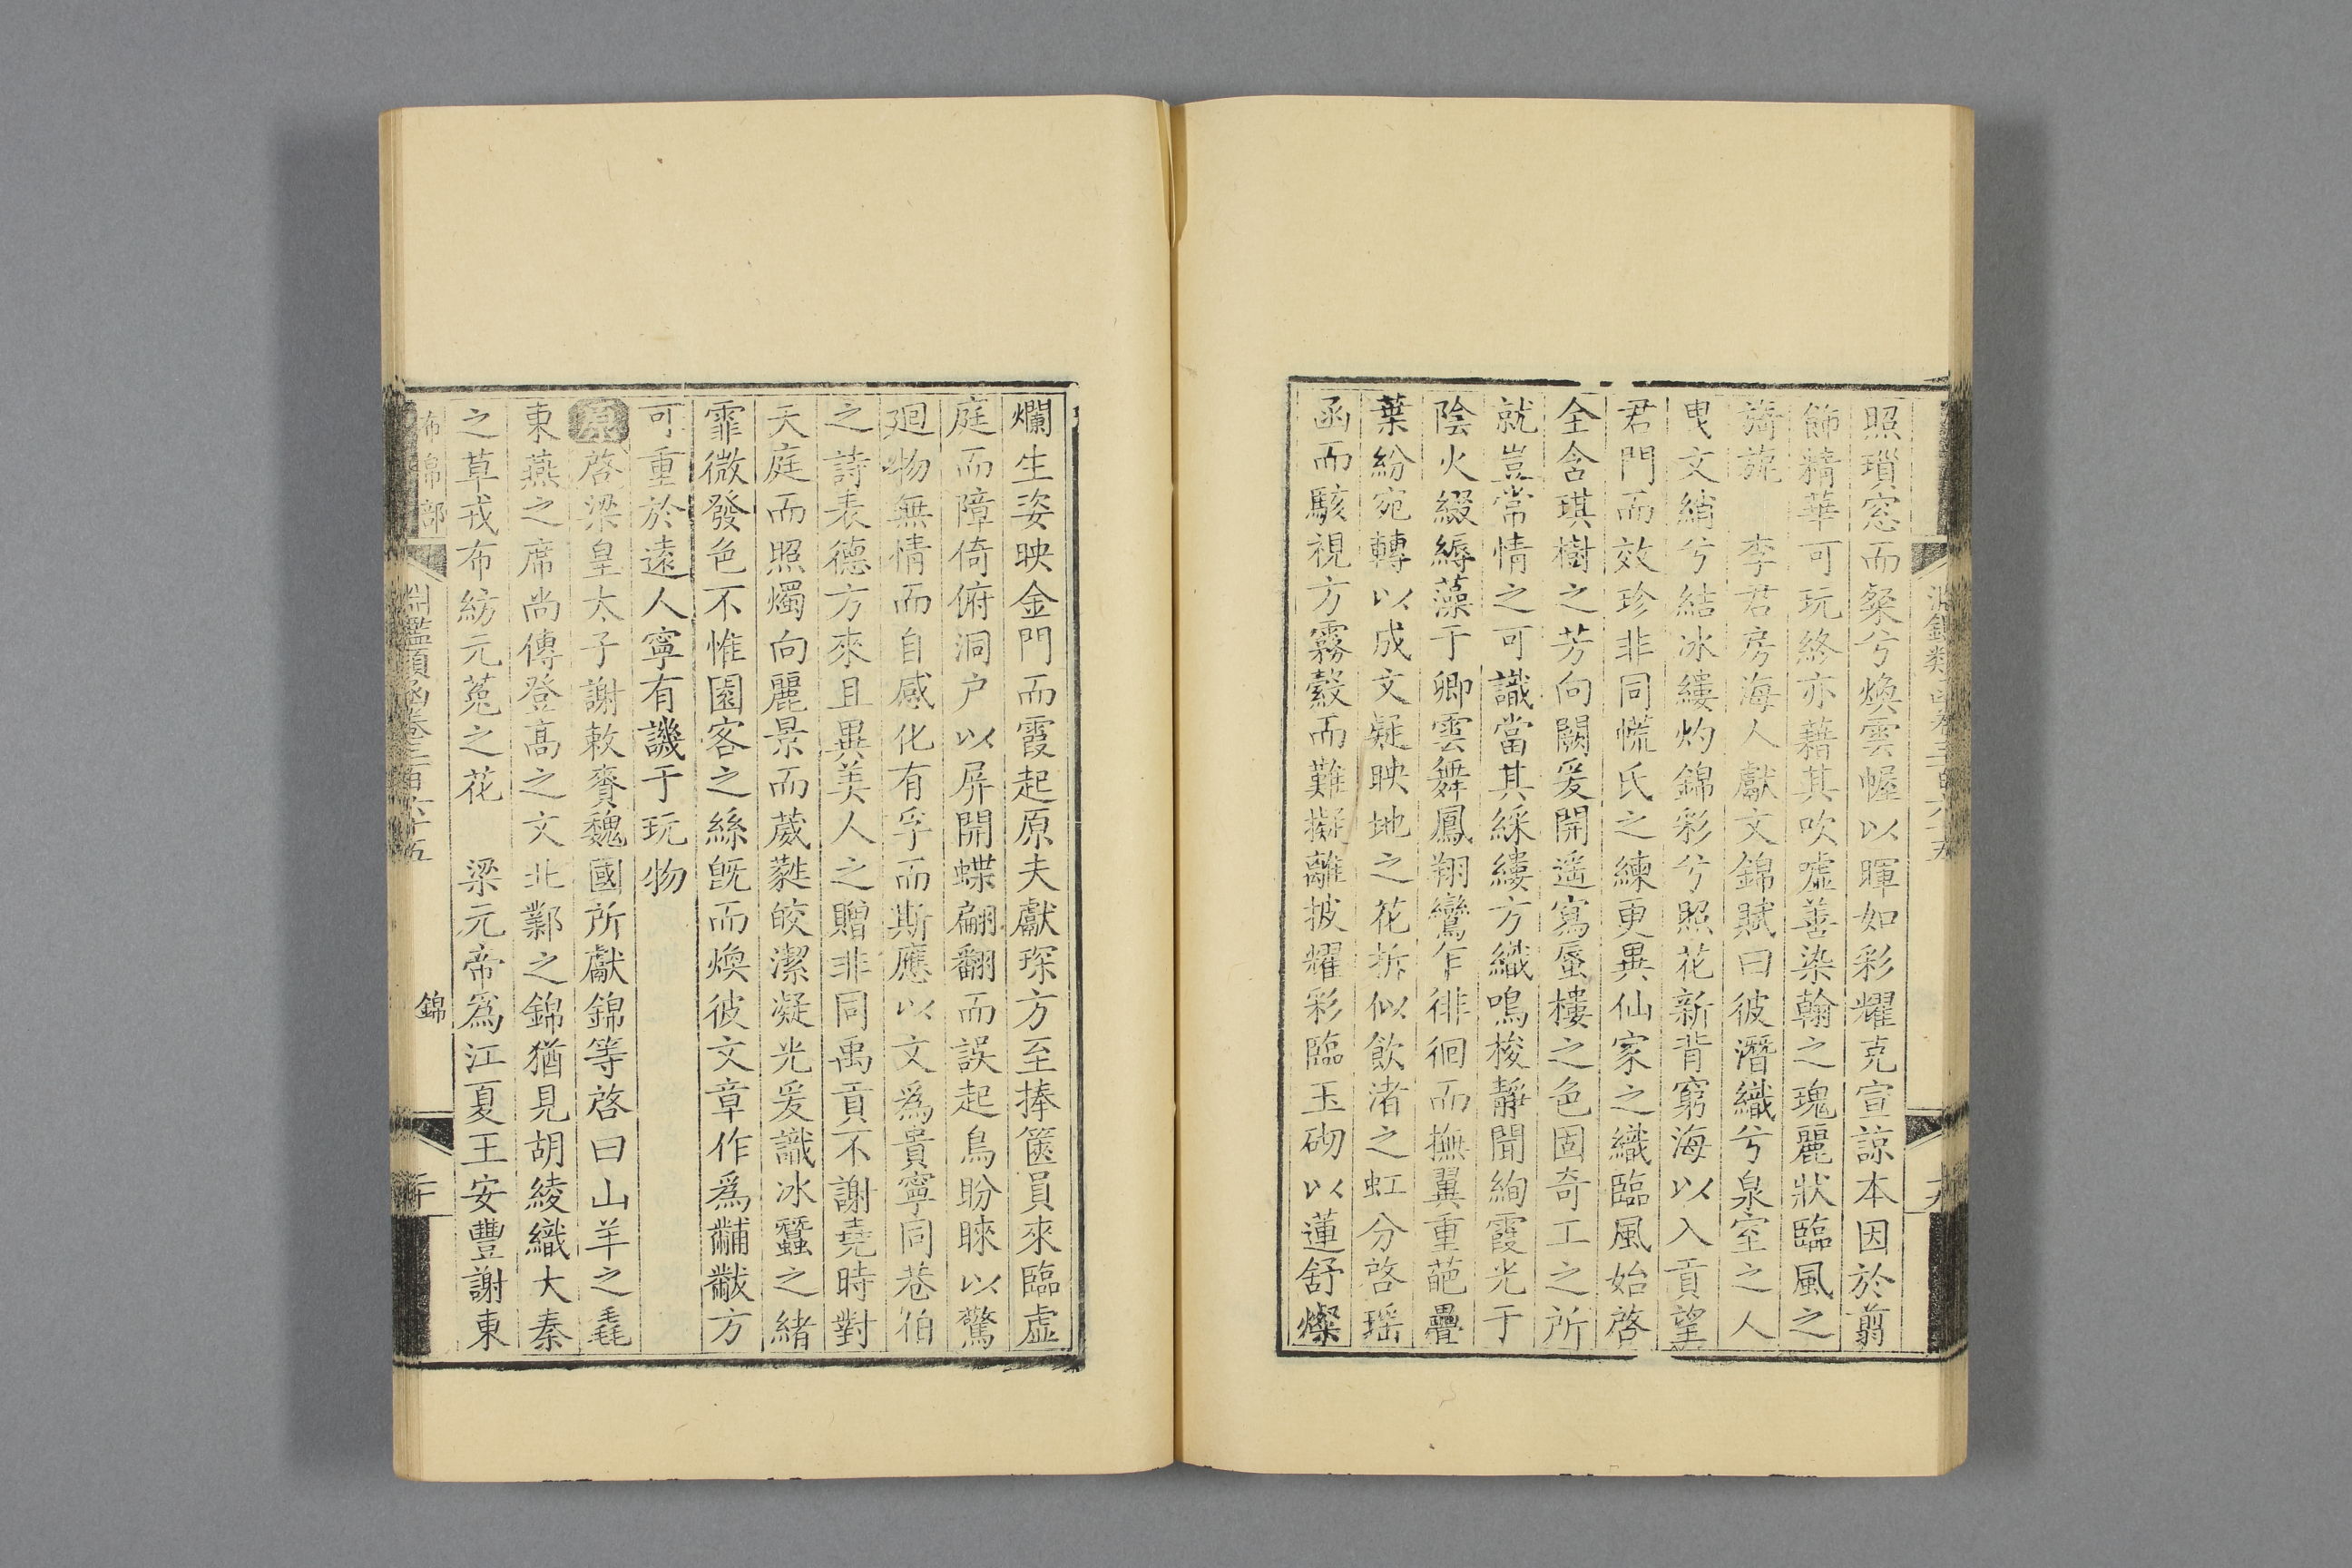 照瑣窓而粲兮煥雲幄以暉如彩耀克宣諒本因於翦
飾精華可玩終亦藉其吹噓善染翰之瑰麗狀臨風之
旖旎　李君房海人獻文錦賦曰彼潛織兮泉室之人
曳文綃兮結冰縷灼錦彩兮照花新背窮海以入貢望
君門而效珍非同㡆氏之練更異仙家之織臨風始啓
全含琪樹之芳向闕爰開遥寫蜃樓之色固奇工之所
就豈常情之可識當其綵縷方織鳴梭靜聞絢霞光于
陰火綴縟藻于卿雲舞鳳翔鸞乍徘徊而撫翼重葩疊
葉紛宛轉以成文疑映地之花拆似飲渚之虹分啓瑶
函而駭視方霧縠而難擬離披耀彩臨玉砌以蓮舒燦
爛生姿映金門而霞起原夫獻琛方至捧篋員來臨虛
庭而障倚俯洞户以屏開蝶翩翻而誤起鳥盼睞以驚
廻物無情而自感化有孚而斯應以文爲貴寧同巷伯
之詩表德方來且異美人之贈非同禹貢不謝堯時對
天庭而照燭向麗景而葳蕤皎潔凝光爰識冰蠶之緒
霏微發色不惟園客之絲旣而煥彼文章作爲黼黻方
可重於遠人寧有譏于玩物
原啓梁皇太子謝敕賚魏國所獻錦等啓曰山羊之毳
東燕之席尚傳登高之文北鄴之錦猶見胡綾織大秦
之草戎布紡元菟之花　梁元帝爲江夏王安豐謝東
布帛部　淵鑑類函卷三百六十五　錦　二十